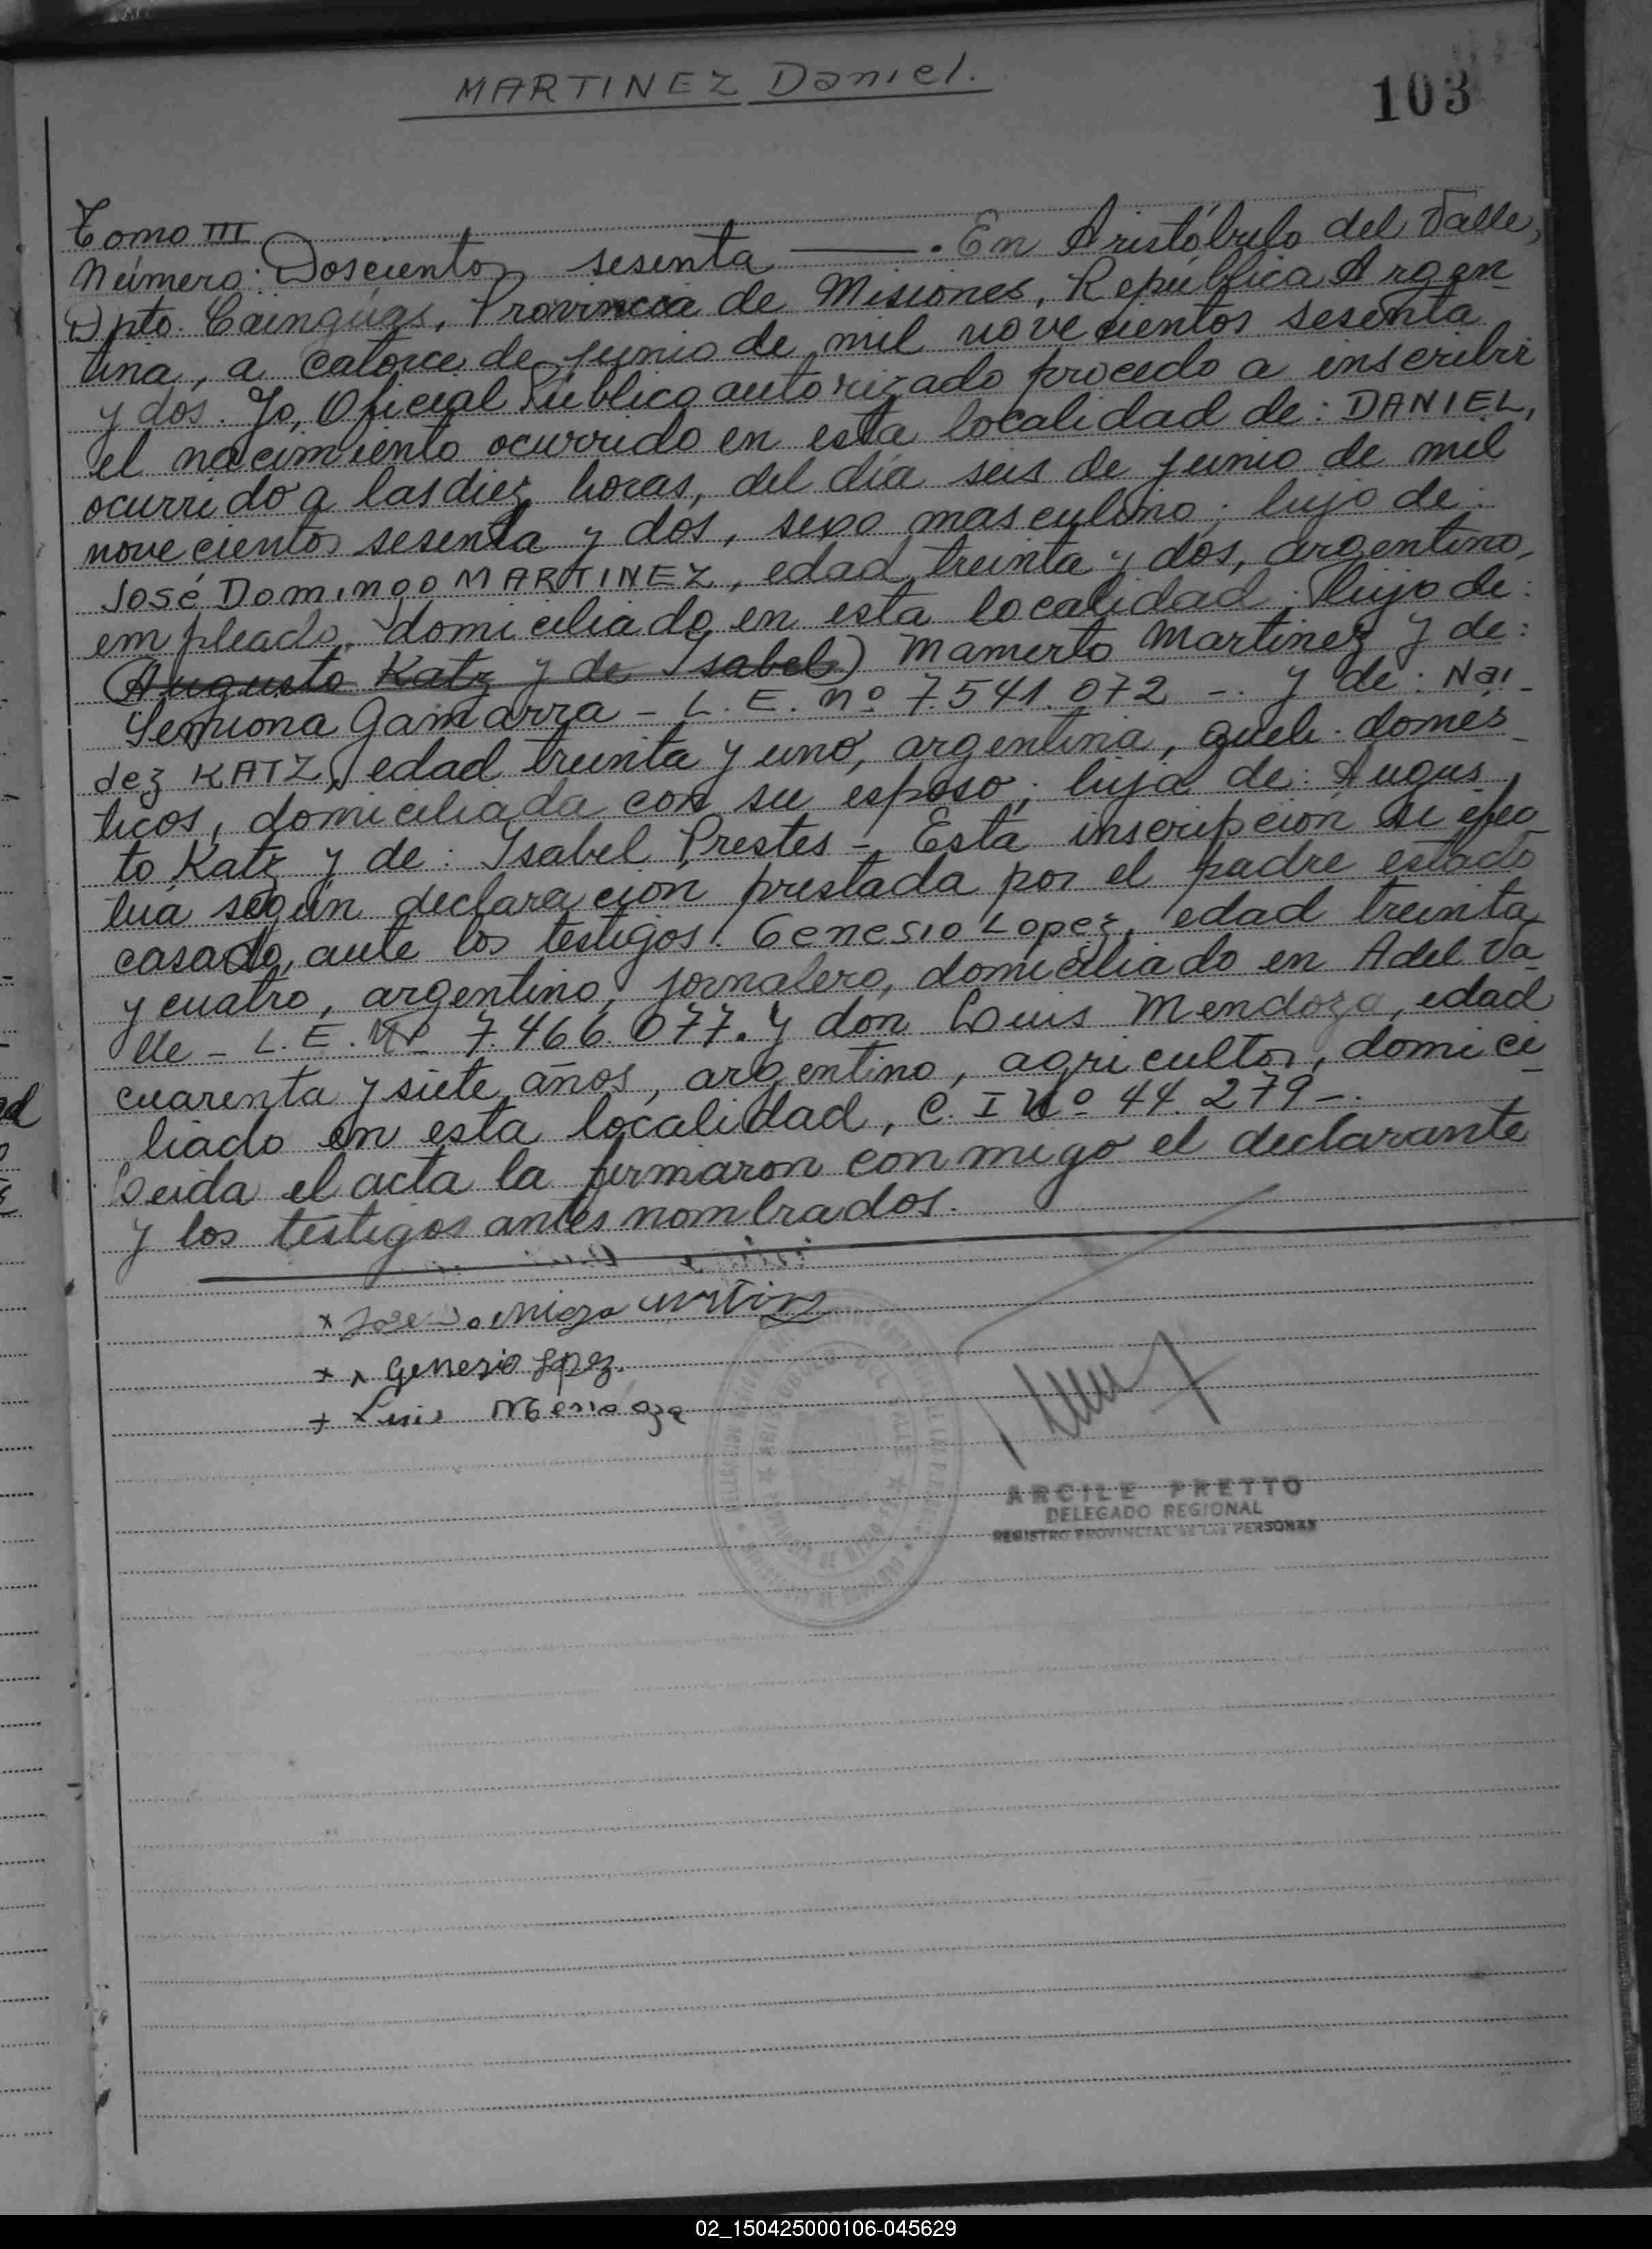 MARTINEZ Daniel.
103
Tomo III
Número: Doscientos sesenta ——. En Aristóbulo del Valle,
Dpto. Cainguás, Provincia de Misiones, República Argen-
tina, a catorce de junio de mil novecientos sesenta
y dos. Yo, Oficial Público autorizado procedo a inscribir
el nacimiento ocurrido en esta localidad de: DANIEL,
ocurrido a las diez horas, del día seis de junio de mil
novecientos sesenta y dos, sexo masculino; hijo de:
José Domingo MARTINEZ, edad treinta y dos, argentino,
empleado, domiciliado en esta localidad; hijo de:
(Augusto Katz y de Isabel) Mamerto Martinez y de:
Gamarra - L. E. nº 7.541.072 -. y de: Nai-
dez KATZ, edad treinta y uno, argentina, queh. domés-
ticos, domiciliada con su esposo; hija de: Augus-
to Katz y de: Isabel Prestes - Esta inscripción se efec-
túa según declaración prestada por el padre estado
casado, ante los testigos: Genesio Lopez, edad treinta
y cuatro, argentino, jornalero, domiciliado en A del Va-
lle - L. E. Nº 7.466.077. y don Luis Mendoza, edad
cuarenta y siete años, argentino, agricultor, domici-
liado en esta localidad, C. I Nº 44.279 -.
Leida el acta la firmaron conmigo el declarante
y los testigos antes nombrados.
x Jose
x Genesio Lopez.
+ Luis Mendoza
ARCILE PRETTO
DELEGADO REGIONAL
REGISTRO PROVINCIAL DE LAS PERSONAS
02_150425000106-045629